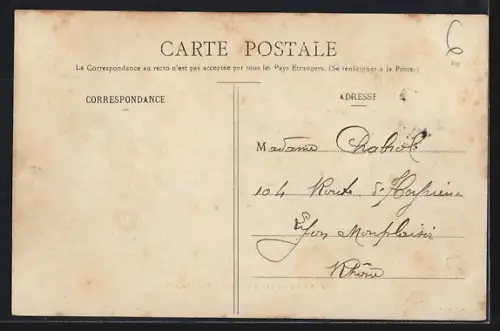 6
CARTE POSTALE
La Correspondance au recto n'est pas acceptée par tous les Pays Etrangers. (Se renseigner à la Poste.)
CORRESPONDANCE
ADRESSE
Madame Chabot
104 Route d'Heyrieux
Lyon Monplaisir
Rhône